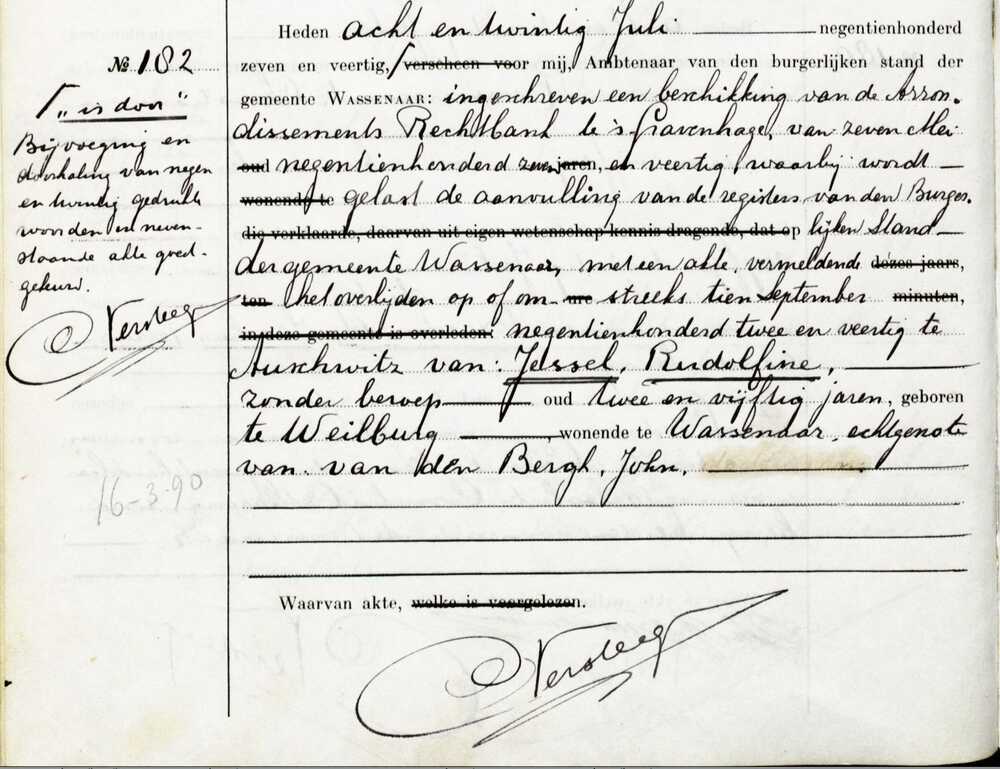 Heden acht en twintig Juli negentienhonderd
№ 182
zeven en veertig, ⌈ verscheen voor mij, Ambtenaar van den burgerlijken stand der
gemeente WASSENAAR: ingeschreven een beschikking van de Arron-
dissements Rechtbank te 's Gravenhage, van zeven Mei
oud negentienhonderd zeven jaren, en veertig, waarbij wordt
wonende te gelast de aanvulling van de registers van den Burger-
die verklaarde, daarvan uit eigen wetenschap kennis dragende, dat op lijken Stand
der gemeente Wassenaar, met een akte, vermeldende dezes jaars,
ten het overlijden op of om- ure streeks tien september minuten,
in deze gemeente is overleden: negentienhonderd twee en veertig te
Auschwitz van: Jessel, Rudolfine,
zonder beroep oud twee en vijftig jaren, geboren
te Weilburg, wonende te Wassenaar, echtgenote
van van den Bergh, John,
Waarvan akte, welke is voorgelezen.
Versteeg
⌈ "is door"
Bijvoeging en
doorhaling van negen
en twintig gedrukte
woorden in neven-
staande akte goed-
gekeurd.
Versteeg
16-3-90